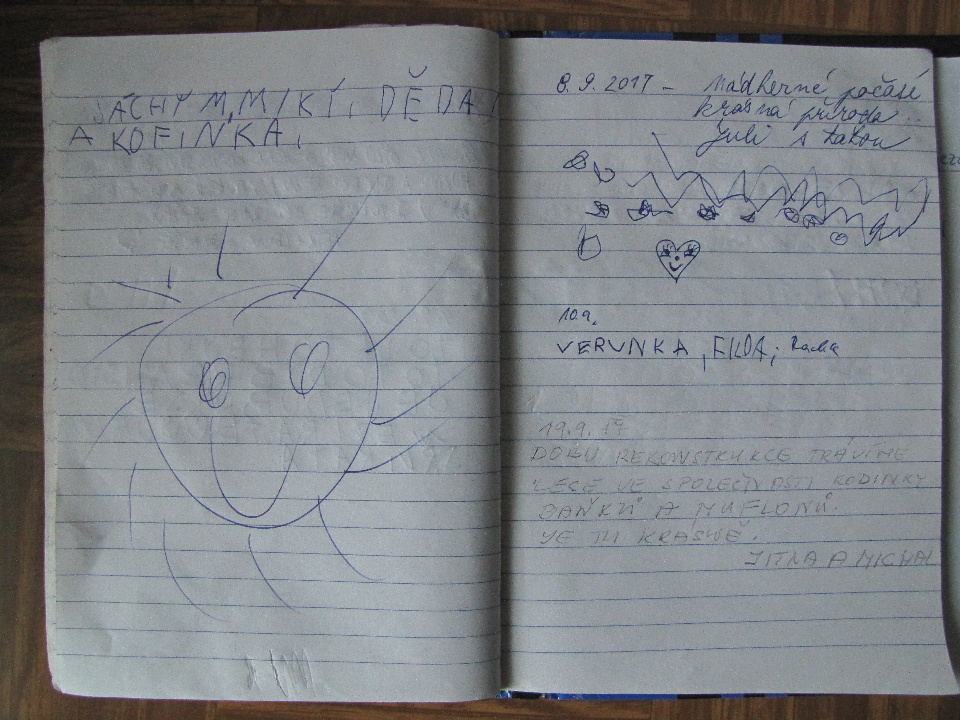 JÁCHYM, MIKI, DĚDA
A KOFINKA.
8.9.2017 - nádherné počasí
krásná příroda..
Juli s
10.9.
VERUNKA,
19.9.17
DOBU REKONSTRUKCE TRÁVÍME
VE SPOLEČNOSTI RODINKY
DAŇKŮ A MUFLONŮ.
JE TU KRÁSNĚ.
JITKA A MICHAL